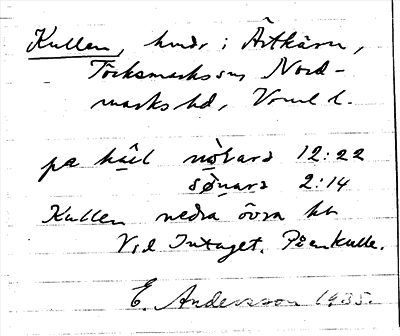 Kullen, hmdr i Ärtkärn,
Töcksmarks sn Nord-
marks hd, Vrml l.
pa kâll nò̤rard 12:22
sø̀nard 2:14
Kullen nedra övra hh
Vid Intaget. På en kulle.
E. Andersson 1935.